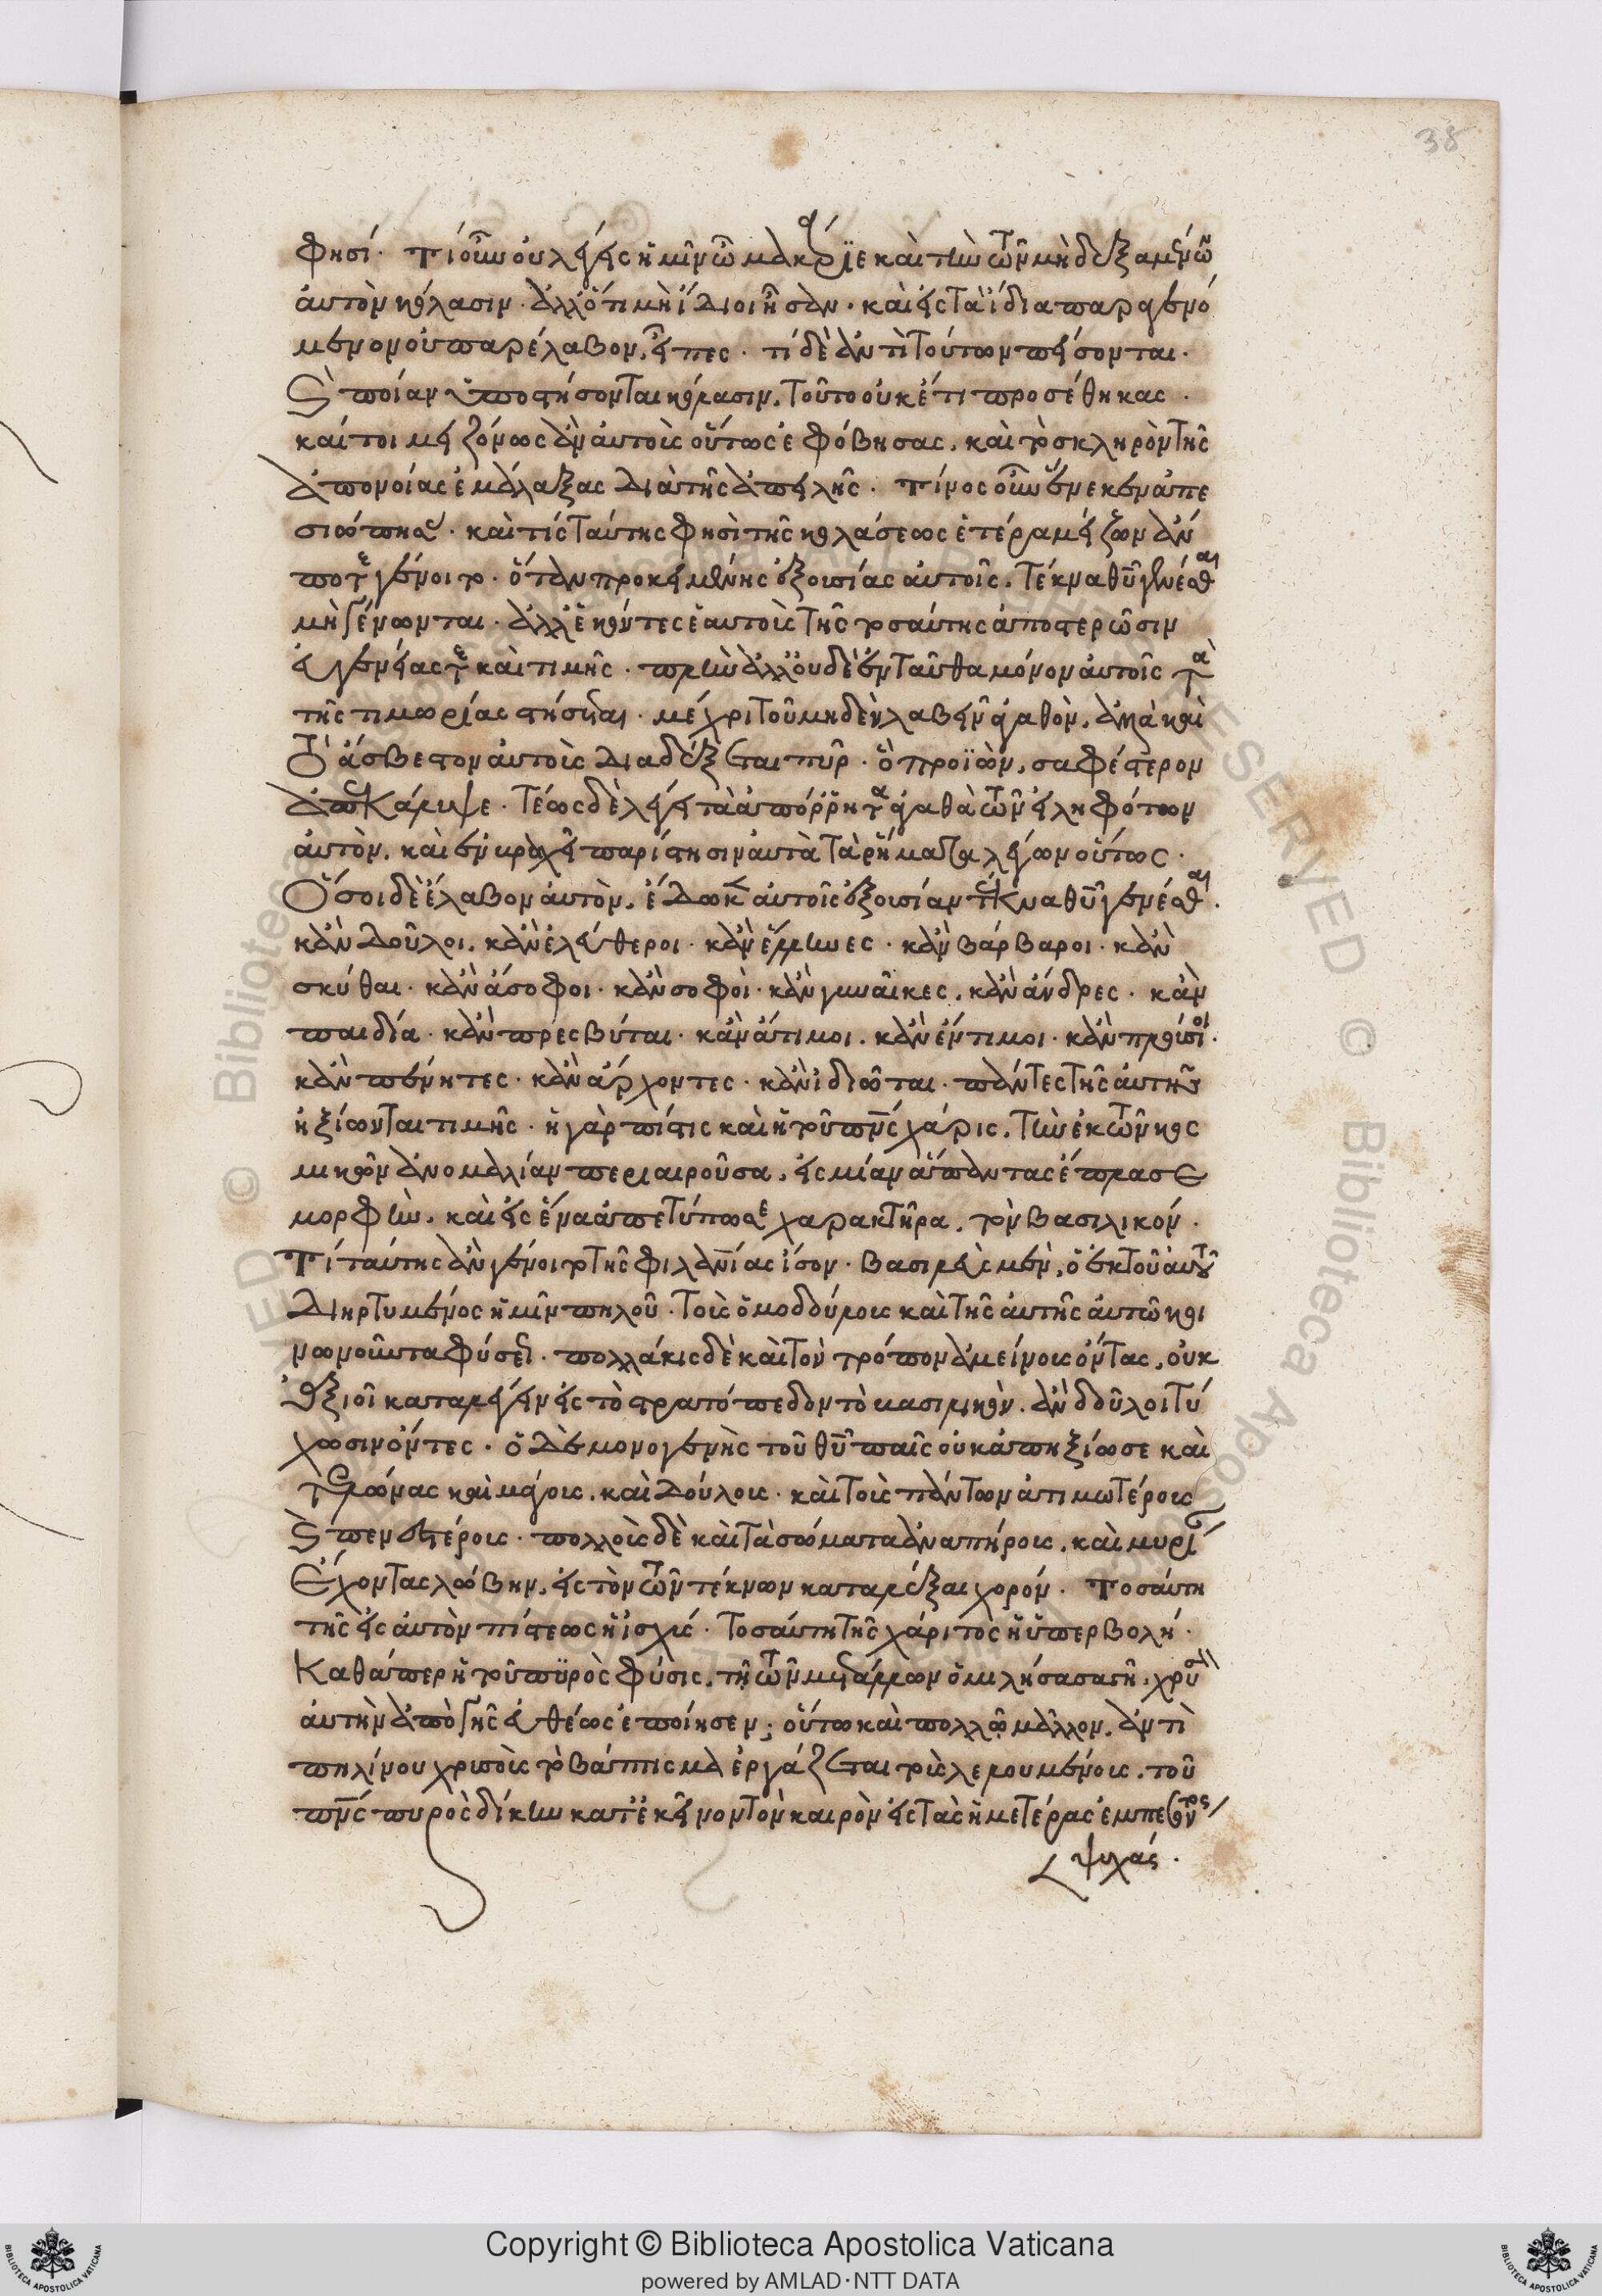 38
φησί. τί οὖν οὐ λέγεις ἡμῖν ὦ μακάριε καὶ τὴν τῶν μὴ δεξαμένων
αὐτὸν κόλασιν. ἀλλ' ὅτι μὴ ἴδιοι ἦσαν. καὶ εἰς τὰ ἴδια παραγενό
μενον οὐ παρέλαβον, εἶπες. τί δὲ ἀντὶ τούτων πείσονται.
καὶ ποίαν ὑποστήσονται κόλασιν, τοῦτο οὐκέτι προσέθηκας.
καίτοι μειζόνως ἂν αὐτοὺς οὕτως ἐφόβησας, καὶ τὸ σκληρὸν τῆς
ἀπονοίας ἐμάλαξας διὰ τῆς ἀπειλῆς. τίνος οὖν ἕνεκεν ἀπε
σιώπησας. καὶ τίς ταύτης φησὶ τῆς κολάσεως ἑτέρα μείζων ἄν
ποτε γένοιτο. ὅταν προκειμένης ἐξουσίας αὐτοῖς, τέκνα θυ γενέσθαι
μὴ γένωνται. ἀλλ' ἑκόντες ἑαυτοὺς τῆς τοσαύτης ἀποστερῶσιν
εὐγενείας τε καὶ τιμῆς. πλὴν ἀλλ' οὐδὲ ἐνταῦθα μόνον αὐτοῖς τὰ
τῆς τιμωρίας στήσεται. μέχρι τοῦ μηδὲν λαβεῖν ἀγαθὸν, ἀλλὰ καὶ
τὸ ἄσβεστον αὐτοὺς διαδέξεται πῦρ. ὃ προϊὼν, σαφέστερον
ἀπεκάλυψε. τέως δὲ λέγει τὰ ἀπόῤῥητα ἀγαθὰ τῶν εἰληφότων
αὐτὸν, καὶ ἐν βραχεῖ παρίστησιν αὐτὰ τὰ ῥήματα λέγων οὕτως.
Ὅσοι δὲ ἔλαβον αὐτὸν, ἔδωκεν αὐτοῖς ἐξουσίαν τέκνα θυ γενέσθαι.
κἂν δοῦλοι, κἂν ἐλεύθεροι. κἂν ἕλληνες. κἂν βάρβαροι. κἂν
σκύθαι. κἂν ἄσοφοι. κἂν σοφοὶ. κἂν γυναῖκες, κἂν ἄνδρες. κἂν
παιδία. κἂν πρεσβύται. κἂν ἄτιμοι. κἂν ἔντιμοι. κἂν πλούσιοι.
κἂν πένητες. κἂν ἄρχοντες. κἂν ἰδιῶται. πάντες τῆς αὐτῆς
ἠξίωνται τιμῆς. ἡ γὰρ πίστις καὶ ἡ τοῦ πνς χάρις, τὴν ἐκ τῶν κοσ
μικῶν ἀνομαλίαν περιαιροῦσα, εἰς μίαν ἅπαντας ἔπλασε
μορφὴν. καὶ εἰς ἕνα ἀπετύπωσε χαρακτῆρα, τὸν βασιλικόν.
Τί ταύτης ἂν γένοιτο τῆς φιλανίας ἴσον. βασιλεὺς μὲν, ὁ ἐκ τοῦ αὐτοῦ
διηρτυμένος ἡμῖν πηλοῦ. τοὺς ὁμοδούλους καὶ τῆς αὐτῆς αὐτῶ κοι
νωνοῦντας φύσεως. πολλάκις δὲ καὶ τὸν τρόπον ἀμείνους ὄντας, οὐκ
ἀξιοῖ καταλέγειν εἰς τὸ στρατόπεδον τὸ βασιλικόν, ἂν δοῦλοι τύ
χωσιν ὄντες. ὁ δὲ μονογενὴς τοῦ θυ παῖς οὐκ ἀπηξίωσε καὶ
τελώνας καὶ μάγους, καὶ δούλους. καὶ τοὺς πάντων ἀτιμωτέρους
καὶ πενεστέρους. πολλοὺς δὲ καὶ τὰ σώματα ἀναπήρους, καὶ μυρί
ἔχοντας λώβην, εἰς τὸν τῶν τέκνων καταλέξαι χορόν. Τοσαύτη
τῆς εἰς αὐτὸν πίστεως ἡ ἰσχύς. τοσαύτη τῆς χάριτος ἡ ὑπερβολή.
Καθάπερ ἡ τοῦ πυρὸς φύσις, τῇ τῶν μετάλλων ὁμιλήσασα γῇ, χρυσὸν
αὐτὴν ἀπὸ γῆς εὐθέως ἐποίησεν; οὕτω καὶ πολλῷ μᾶλλον, ἀντὶ
πηλίνου χρυσοῦς τὸ βάπτισμα ἐργάζεται τοὺς λελουμένους, τοῦ
πνς πυρὸς δίκην κατ' ἐκεῖνον τὸν καιρὸν εἰς τὰς ἡμετέρας ἐμπεσόντος
ψυχάς.
Copyright © Biblioteca Apostolica Vaticana
powered by AMLAD·NTT DATA